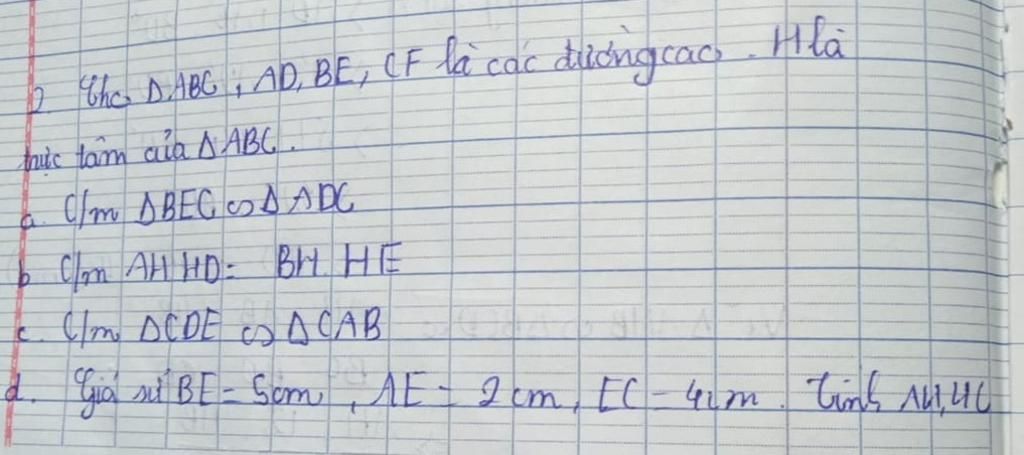 2. Cho ΔABC, AD, BE, CF là các đường cao. H là
trực tâm của ΔABC.
a. C/m ΔBEC ∽ ΔADC
b C/m AH.HD = BH.HE
c. C/m ΔCDE ∽ ΔCAB
d. Giả sử BE = 5cm, AE = 2cm, EC = 4cm. Tính AH, HC